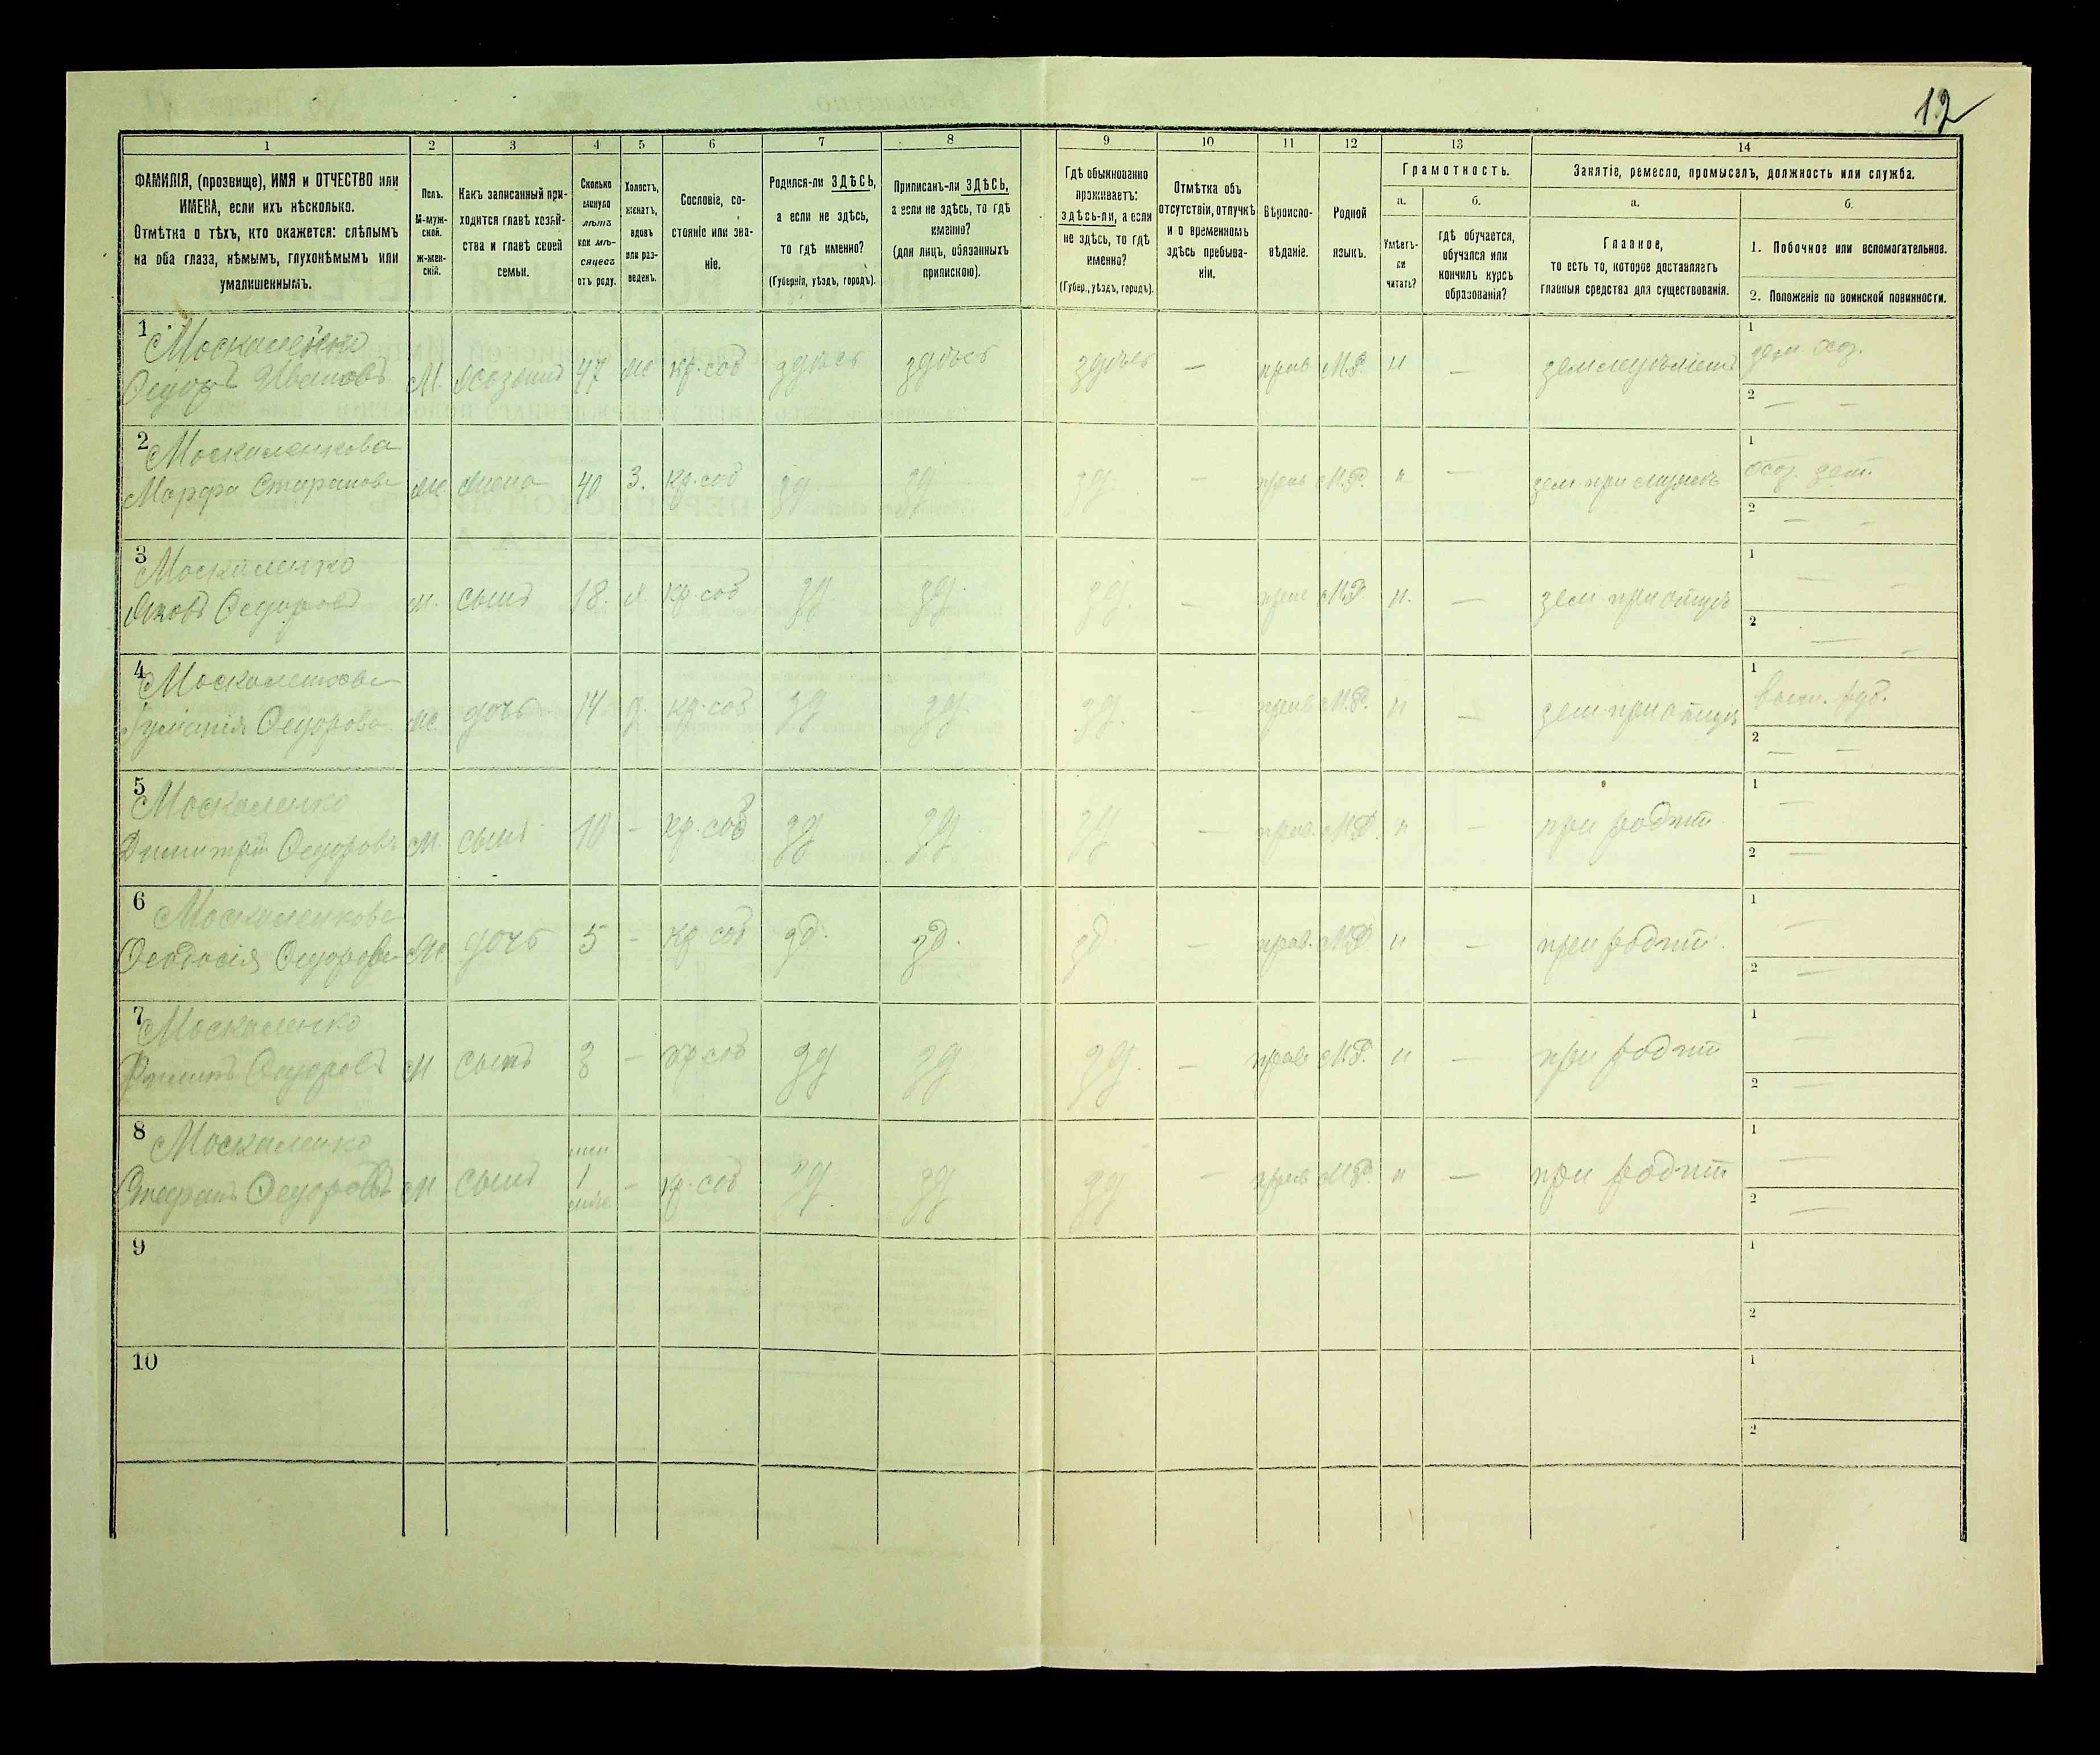 12
1
2
3
4
5
6
7
8
9
10
11
12
13
14
ФАМИЛІЯ, (прозвище), ИМЯ и ОТЧЕСТВО или
ИМЕНА, если ихъ нѣсколько.
Отмѣтка о тѣхъ, кто окажется: слѣпымъ
на оба глаза, нѣмымъ, глухонѣмымъ или
умалишеннымъ.
Полъ.
М-муж-
ской.
ж-жен-
скій.
Какъ записанный при-
ходится главѣ хозяй-
ства и главѣ своей
семьи.
Сколько
минуло
лѣтъ
или мѣ-
сяцевъ
отъ роду.
Холостъ,
женатъ,
вдовъ
или раз-
веденъ.
Сословіе, со-
стояніе или зва-
ніе.
Родился-ли ЗДѢСЬ,
а если не здѣсь,
то гдѣ именно?
(Губернія, уѣздъ, городъ).
Приписанъ-ли ЗДѢСЬ,
а если не здѣсь, то гдѣ
именно?
(для лицъ, обязанныхъ
припискою).
Гдѣ обыкновенно
проживаетъ:
здѣсь-ли, а если
не здѣсь, то гдѣ
именно?
(Губер., уѣздъ, городъ).
Отмѣтка объ
отсутствіи, отлучкѣ
и о временномъ
здѣсь пребыва-
ніи.
Вѣроиспо-
вѣданіе.
Родной
языкъ.
Грамотность.
а.
Умѣетъ-
ли
читать?
б.
гдѣ обучается,
обучался или
кончилъ курсъ
образованія?
Занятіе, ремесло, промыселъ, должность или служба.
а.
Главное,
то есть то, которое доставляетъ
главныя средства для существованія.
б.
1. Побочное или вспомогательное.
2. Положеніе по воинской повинности.
1 Москаленко
Федоръ Ивановъ М. хозяинъ 47 ж кр. соб здѣсь здѣсь здѣсь — прав М.Р. н — земледѣліемъ
1
2 — —
2 Москаленкова
Марфа ж. жена 40 З. кр. соб зд зд зд. — прав М.Р. н — зем при мужѣ
1
2 — —
3 Москаленко
Яковъ Федоровъ м. сынъ 18. х. кр. соб зд. зд. зд. — прав М.Р н. — зем при отцѣ
1 — —
2 — —
4 Москаленкова
Федорова ж. дочь 14 д. кр. соб зд зд. зд. — прав М.Р. н — зем при отцѣ
1
2 — —
5 Москаленко
Димитрій Федоровъ М. сынъ 10 - кр. соб зд зд зд — прав. М.Р. н — при родит
1 —
2 —
6 Москаленкова
Феодосія Федорова Ж дочь 5 - кр соб зд. зд. зд — прав. М.Р н — при родит.
1 —
2 —
7 Москаленко
Федоровъ М. сынъ 3 — кр соб зд зд зд. — прав М.Р. н — при родит
1 —
2 —
8 Москаленко
Стефанъ Федоровъ М. сынъ 1 — кр. соб зд. зд зд — прав М.Р. н — при родит
1 —
2 —
9
1
2
10
1
2